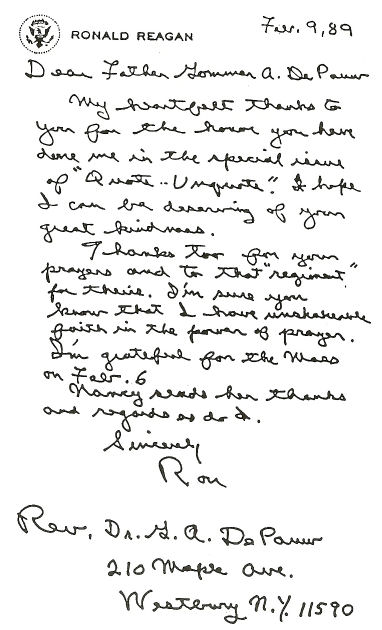 RONALD REAGAN
Feb. 9, 89
Dear Father Gommar A. De Pauw
My heartfelt thanks to
you for the honor you have
done me in the special issue
of "Quote .. Unquote". I hope
I can be deserving of your
great kindness.
Thanks too for your
prayers and to that "regiment"
for theirs. I'm sure you
know that I have unshakeable
faith in the power of prayer.
I'm grateful for the Mass
on Feb. 6
Nancy sends her thanks
and regards as do I.
Sincerely
Ron
Rev. Dr. G. A. De Pauw
210 Maple Ave.
Westbury N.Y. 11590